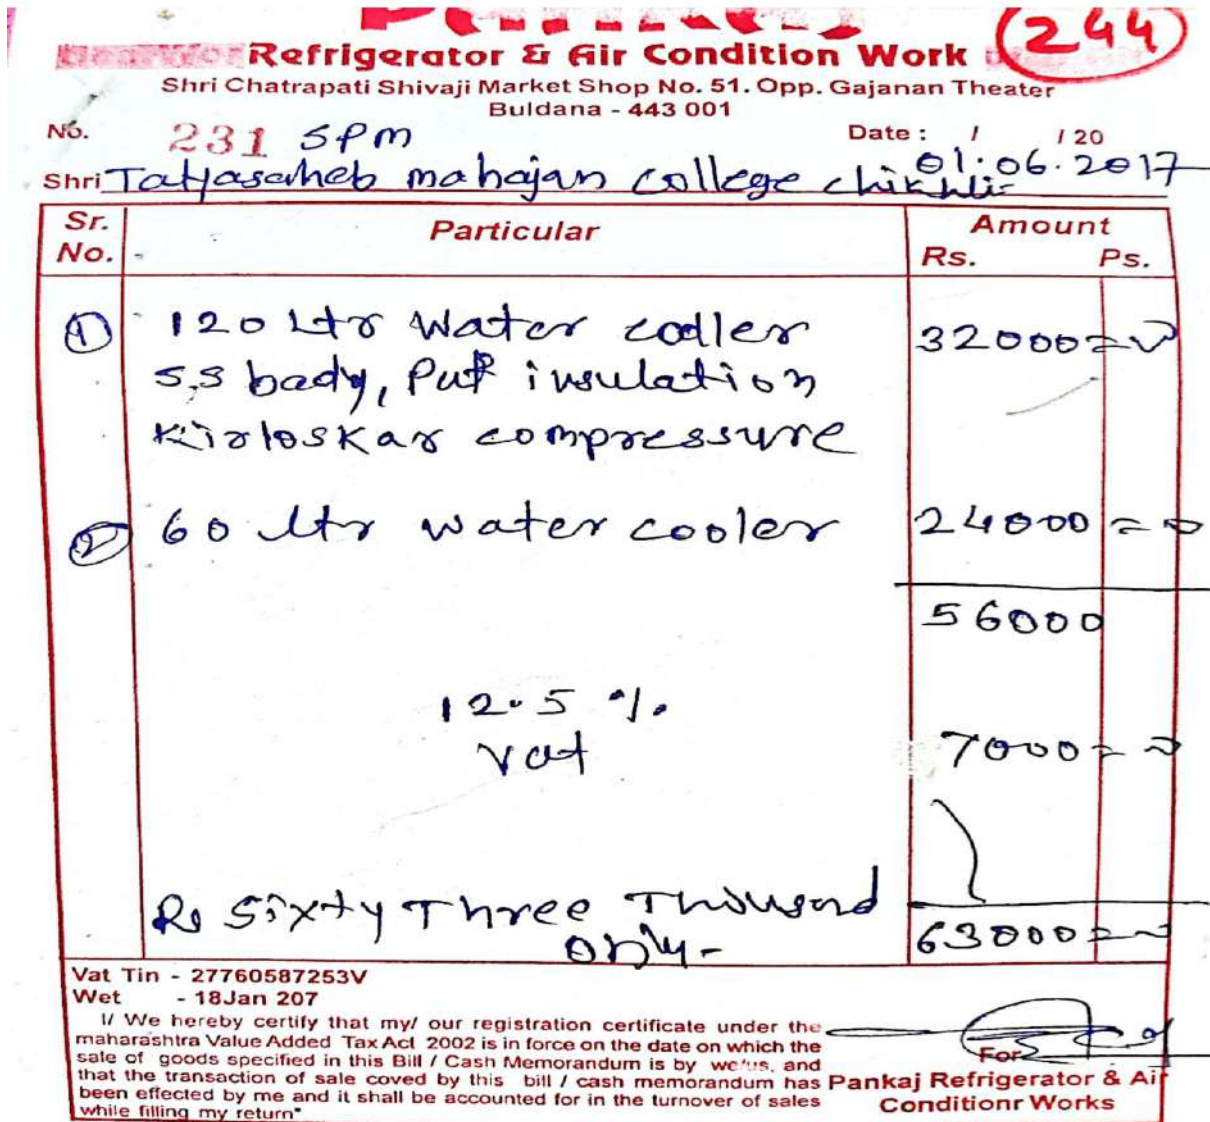 Pankaj
244
Refrigerator & Air Condition Work
Shri Chatrapati Shivaji Market Shop No. 51. Opp. Gajanan Theater
Buldana - 443 001
No. 231 SPM Date : / / 20
01.06.2017
Shri Tatyasaheb mahajan college chikhli
Sr. No. Particular Amount Rs. Ps.
① 120 Ltr Water cooler 32000=
S.S body, Puf insulation
Kirloskar compressure
② 60 Ltr water cooler 24000=0
56000
12.5 %
Vat 7000=0
Rs Sixty Three Thousand
only- 63000=
Vat Tin - 27760587253V
Wet - 18Jan 207
I/ We hereby certify that my/ our registration certificate under the
maharashtra Value Added Tax Act 2002 is in force on the date on which the
sale of goods specified in this Bill / Cash Memorandum is by and
that the transaction of sale coved by this bill / cash memorandum has
been effected by me and it shall be accounted for in the turnover of sales
while filling my return"
For
Pankaj Refrigerator & Air
Conditionr Works